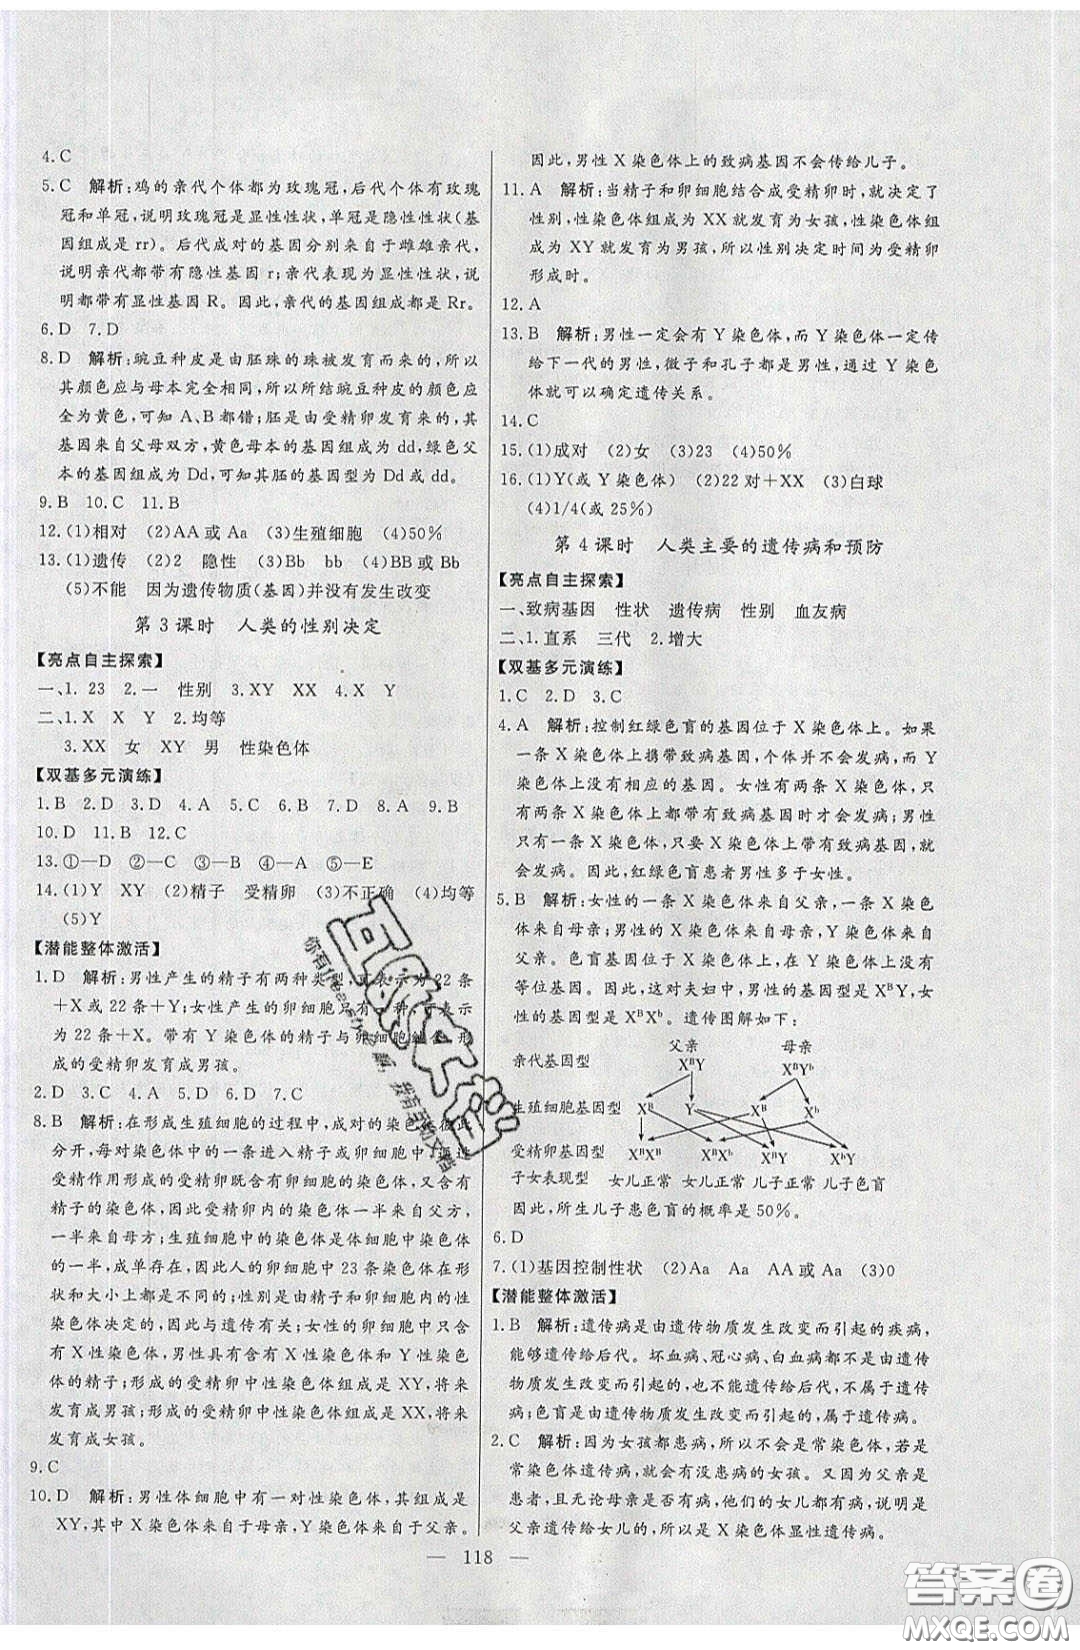 4. C
5. C 解析:鸡的亲代个体都为玫瑰冠,后代个体有玫瑰
冠和单冠,说明玫瑰冠是显性性状,单冠是隐性性状(基
因组成是 rr)。后代成对的基因分别来自于雌雄亲代,
说明亲代都带有隐性基因 r;亲代表现为显性性状,说
明都带有显性基因 R。因此,亲代的基因组成都是 Rr。
6. D 7. D
8. D 解析:豌豆种皮是由胚珠的珠被发育而来的,所以
其颜色应与母本完全相同,所以所结豌豆种皮的颜色应
全为黄色,可知 A、B 都错;胚是由受精卵发育来的,其
基因来自父母双方,黄色母本的基因组成为 dd,绿色父
本的基因组成为 Dd,可知其胚的基因型为 Dd 或 dd。
9. B 10. C 11. B
12. (1)相对 (2)AA 或 Aa (3)生殖细胞 (4)50%
13. (1)遗传 (2)2 隐性 (3)Bb bb (4)BB 或 Bb
(5)不能 因为遗传物质(基因)并没有发生改变
第 3 课时 人类的性别决定
【亮点自主探索】
一、1. 23 2. 一 性别 3. XY XX 4. X Y
二、1. X X Y 2. 均等
3. XX 女 XY 男 性染色体
【双基多元演练】
1. B 2. D 3. D 4. A 5. C 6. B 7. D 8. A 9. B
10. D 11. B 12. C
13. ①—D ②—B ③—C ④—A ⑤—E
14. (1)Y XY (2)精子 受精卵 (3)不正确 (4)均等
(5)Y
【潜能整体激活】
1. D 解析:男性产生的精子有两种类型,可表示为 22 条
+X 或 22 条+Y;女性产生的卵细胞只有一种,可表示
为 22 条+X。带有 Y 染色体的精子与卵细胞结合,形
成的受精卵发育成男孩。
2. D 3. C 4. A 5. D 6. D 7. C
8. B 解析:在形成生殖细胞的过程中,成对的染色体彼此
分开,每对染色体中的一条进入精子和卵细胞中,通过
受精作用形成的受精卵既含有卵细胞的染色体,又含有
精子的染色体,因此受精卵内的染色体一半来自父方,
一半来自母方;生殖细胞中的染色体是体细胞中染色体
的一半,成单存在,因此人的卵细胞中 23 条染色体在形
状和大小上都是不同的;性别是由精子和卵细胞中的性
染色体决定的,所以性别与遗传有关;女性的卵细胞中
只含有 X 性染色体,男性具有含有 X 性染色体和 Y 性染色体
的精子;形成的受精卵中性染色体组成是 XY,将来
发育成男孩;形成的受精卵中性染色体组成是 XX,将来
发育成女孩。
9. C
10. D 解析:男性体细胞中有一对性染色体,其组成是
XY,其中 X 染色体来自于母亲,Y 染色体来自于父亲。
因此,男性 X 染色体上的致病基因不会传给儿子。
11. A 解析:当精子和卵细胞结合成受精卵时,就决定了
性别,性染色体组成为 XX 就发育为女孩,性染色体组
成为 XY 就发育为男孩,所以性别决定时间为受精卵
形成时。
12. A
13. B 解析:男性一定会有 Y 染色体,而 Y 染色体一定传
给下一代的男性,微子和孔子都是男性,通过 Y 染色
体就可以确定遗传关系。
14. C
15. (1)成对 (2)女 (3)23 (4)50%
16. (1)Y(或 Y 染色体) (2)22 对+XX (3)白球
(4)1/4(或 25%)
第 4 课时 人类主要的遗传病和预防
【亮点自主探索】
一、致病基因 性状 遗传病 性别 血友病
二、1. 直系 三代 2. 增大
【双基多元演练】
1. C 2. D 3. C
4. A 解析:控制红绿色盲的基因位于 X 染色体上。如果
一条 X 染色体上携带致病基因,个体并不发病,而 Y
染色体上没有相应的基因。女性有两条 X 染色体,只
有两条 X 染色体上都有致病基因时才会发病;男性
只有一条 X 染色体,只要 X 染色体上带有致病基因,就
会发病。因此,红绿色盲患者男性多于女性。
5. B 解析:女性的一条 X 染色体来自父亲,一条 X 染色
体来自母亲;男性的 X 染色体来自母亲,Y 染色体来自
父亲。色盲基因位于 X 染色体上,在 Y 染色体上没有
等位基因。因此,这对夫妇中,男性的基因型是 XᴮY,女
性的基因型是 XᴮXᵇ。遗传图解如下:
父亲 母亲
亲代基因型 XᴮY XᴮYᵇ
生殖细胞基因型 Xᴮ Y Xᴮ Xᵇ
受精卵基因型 XᴮXᴮ XᴮXᵇ XᴮY XᵇY
子女表现型 女儿正常 女儿正常 儿子正常 儿子色盲
因此,所生儿子患色盲的概率是 50%。
6. D
7. (1)基因控制性状 (2)Aa Aa AA 或 Aa (3)0
【潜能整体激活】
1. B 解析:遗传病是由遗传物质发生改变而引起的疾病,
能够遗传给后代。坏血病、冠心病、白血病都不是由遗传
物质发生改变而引起的,也不能遗传给后代,不属于遗传
病;色盲是由遗传物质发生改变而引起的,属于遗传病。
2. C 解析:因为女孩都患病,所以不是常染色体,若是
常染色体遗传病,应该有不患病的女孩。又因为父亲是
患者,且无论母亲是否患病,他们的女儿都有病,说明是
父亲遗传给女儿的,所以是 X 染色体显性遗传病。
— 118 —
答案圈
MXQE.COM